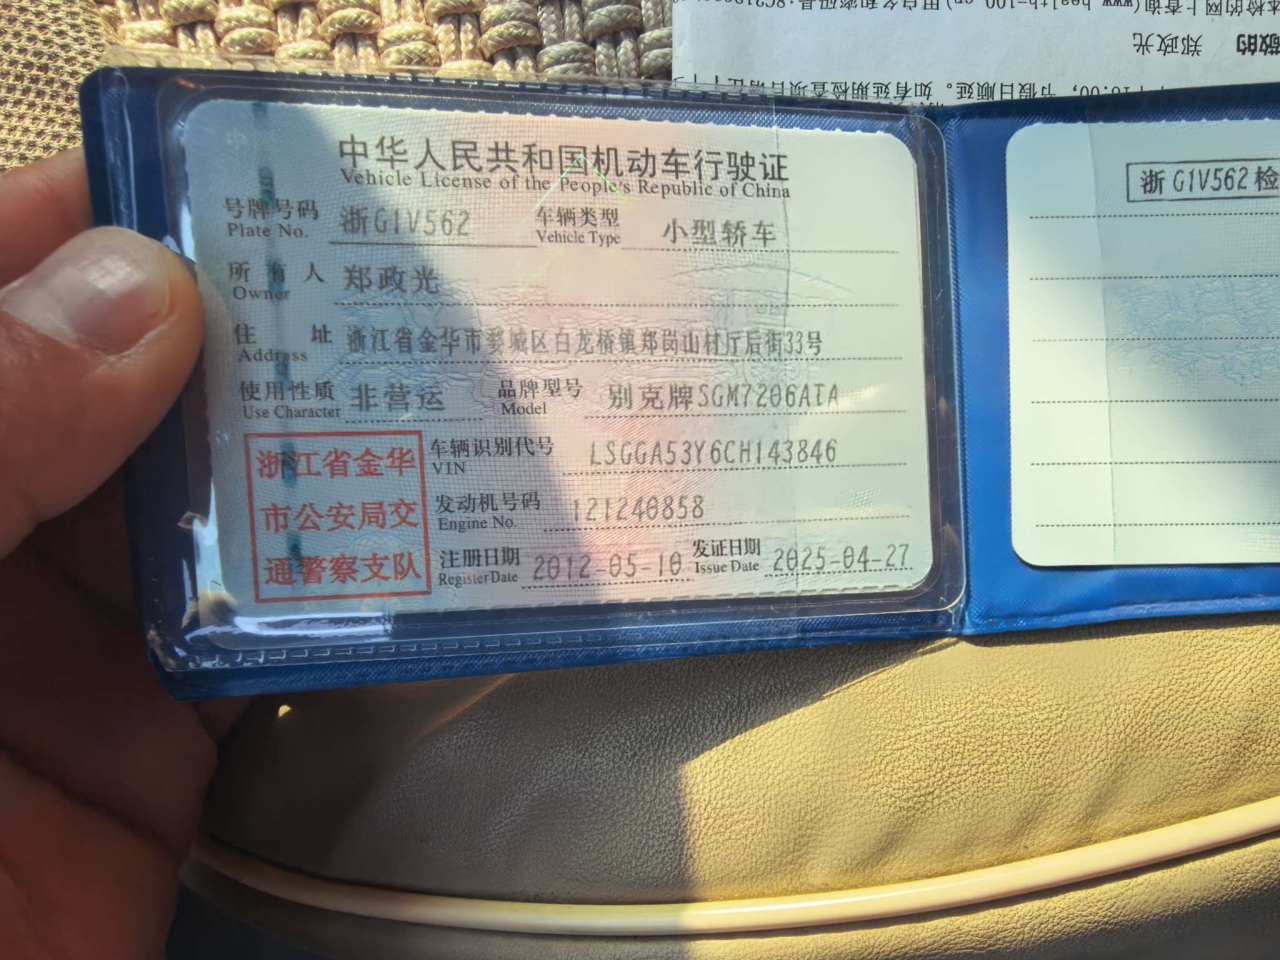 中华人民共和国机动车行驶证
Vehicle License of the People's Republic of China
号牌号码 浙G1V562 车辆类型 小型轿车
Plate No. Vehicle Type
所有人 郑政光
Owner
住址 浙江省金华市婺城区白龙桥镇郑岗山村厅后街33号
Address
使用性质 非营运 品牌型号 别克牌SGM7206ATA
Use Character Model
浙江省金华
市公安局交
通警察支队
车辆识别代号 LSGGA53Y6CH143846
VIN
发动机号码 121240858
Engine No.
注册日期 2012-05-10 发证日期 2025-04-27
Register Date Issue Date
浙G1V562检
郑政光
节假日顺延。如有延期检查项目